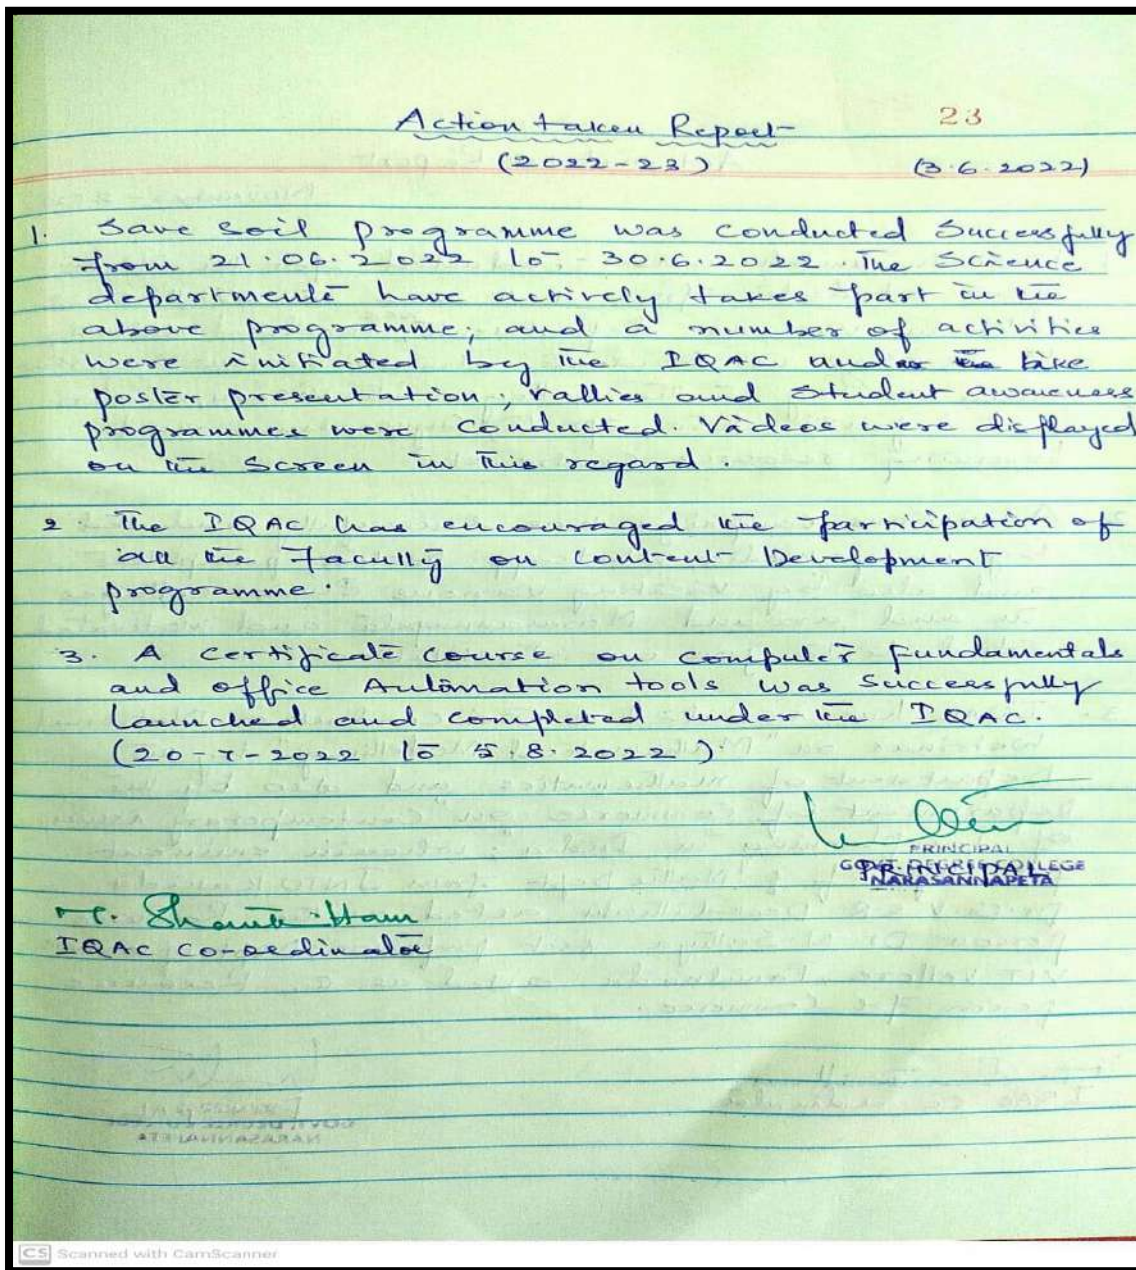 23
Action taken Report
(2022-23) (3.6.2022)
1. Save Soil programme was conducted Successfully
from 21.06.2022 to 30.6.2022. The Science
departments have actively takes part in the
above programme; and a number of activities
were initiated by the IQAC and like
poster presentation, rallies and Student awareness
programmes were conducted. Videos were displayed
on the Screen in this regard.
2 The IQAC has encouraged the participation of
all the Faculty on Content Development
programme.
3. A certificate course on computer fundamentals
and office Automation tools was successfully
Launched and completed under the IQAC.
(20-7-2022 to 5.8.2022)
PRINCIPAL
GOVT. DEGREE COLLEGE
PRINCIPAL
NARASANNAPETA
IQAC co-ordinator
CS Scanned with CamScanner